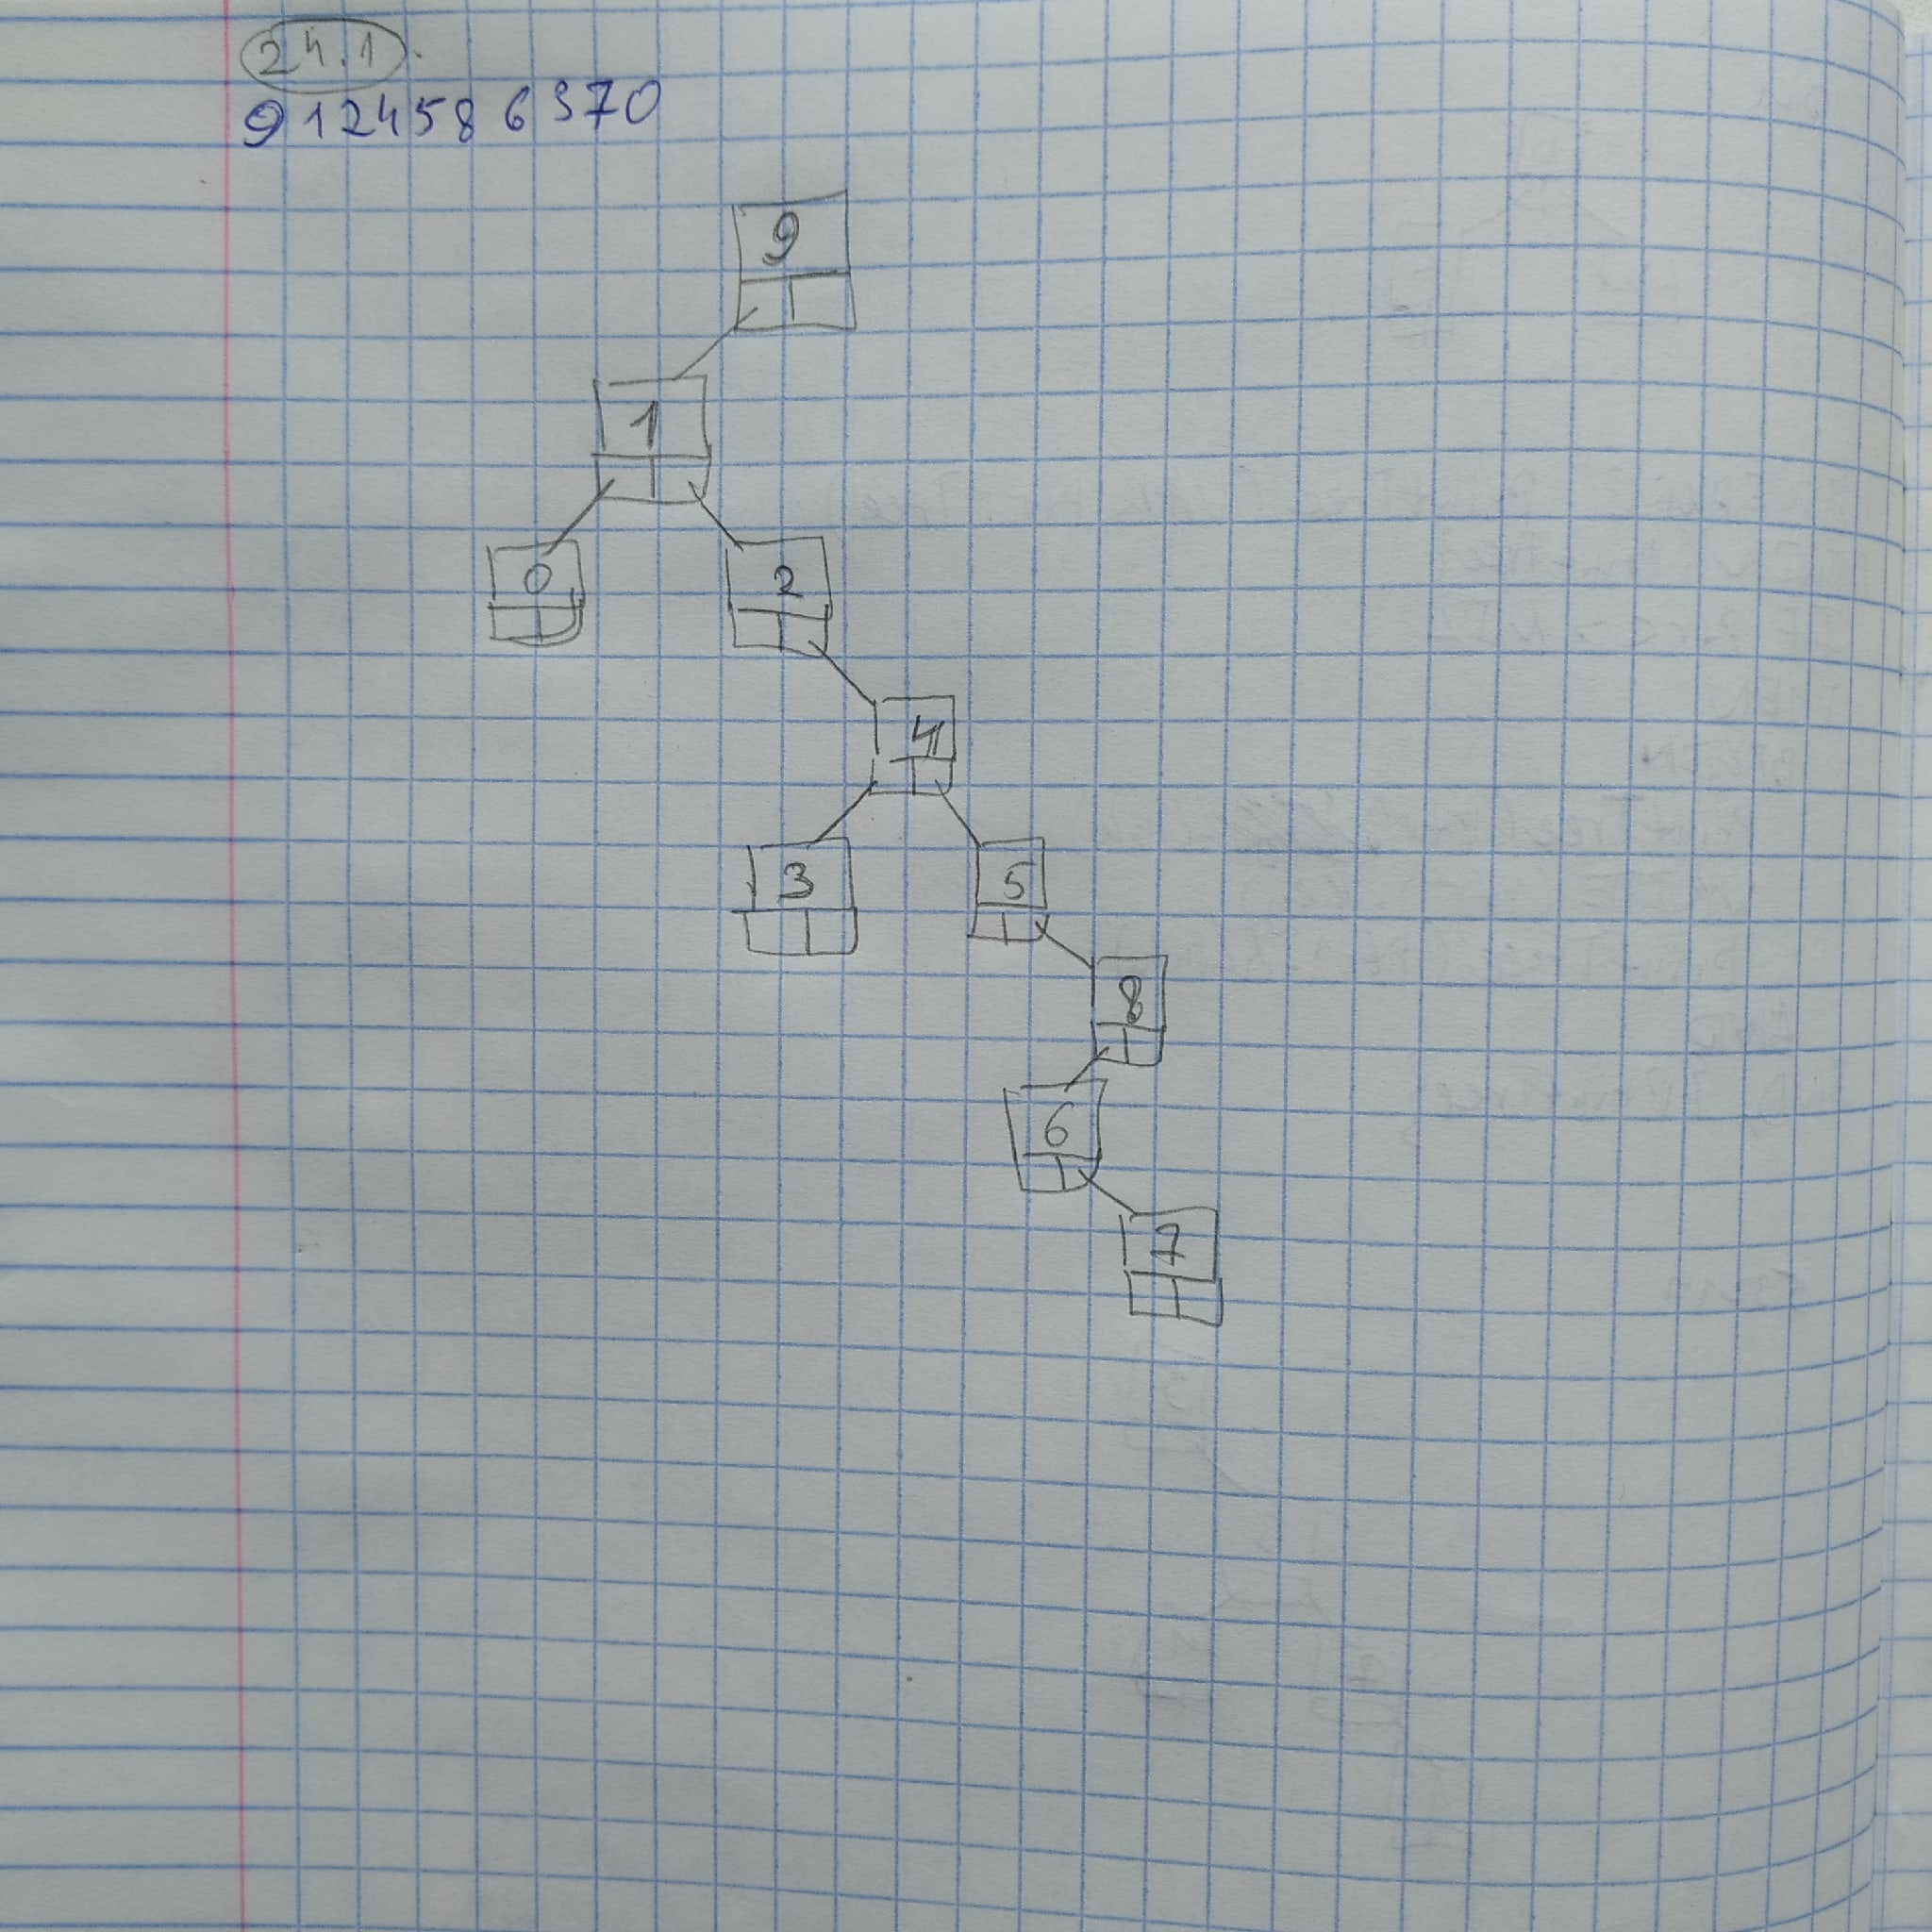 24.1.
9 1 2 4 5 8 6 3 7 0
9
1
0 2
4
3 5
8
6
7